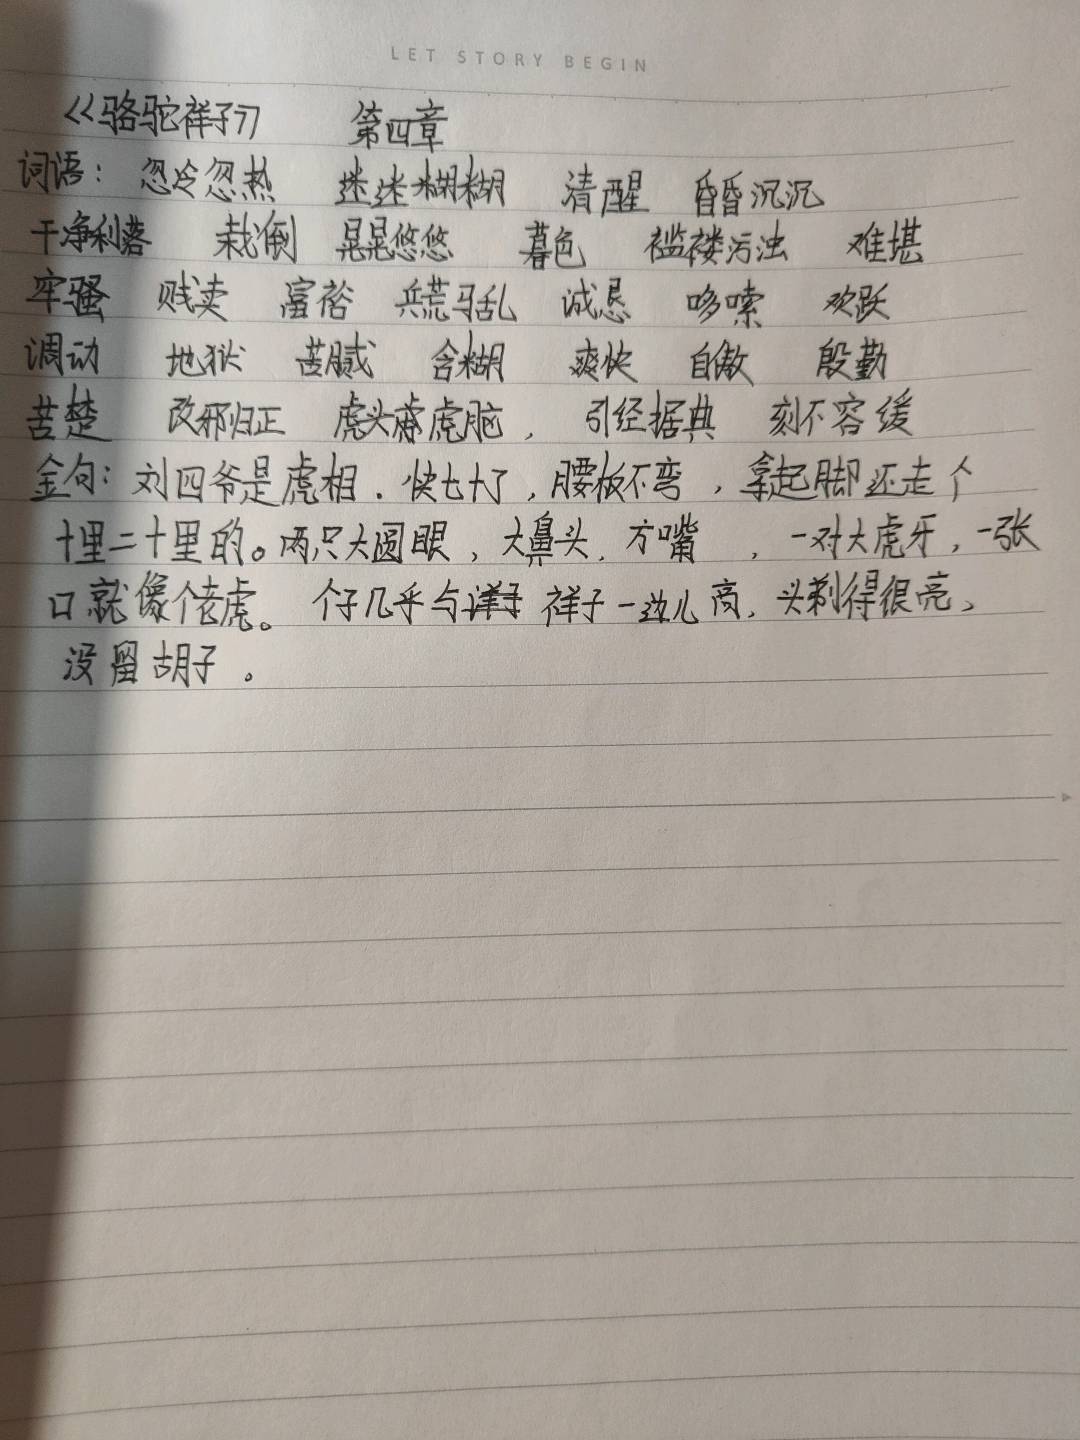 LET STORY BEGIN
《骆驼祥子》 第四章
词语：忽冷忽热 迷迷糊糊 清醒 昏昏沉沉
干净利落 栽倒 晃晃悠悠 暮色 褴褛污浊 难堪
牢骚 贱卖 富裕 兵荒马乱 诚恳 哆嗦 欢跃
调动 地狱 苦腻 含糊 爽快 自傲 殷勤
苦楚 改邪归正 虎头虎脑，引经据典 刻不容缓
金句：刘四爷是虎相．快七十了，腰板不弯，拿起脚还走个
十里二十里的。两只大圆眼，大鼻头，方嘴，一对大虎牙，一张
口就像个老虎。个子几乎与祥子一边儿高，头剃得很亮，
没留胡子．